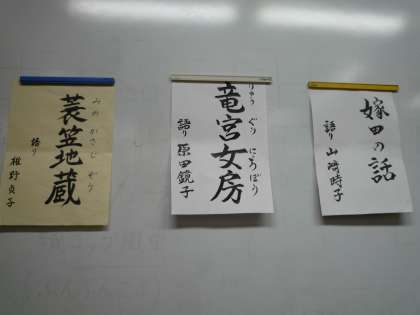 嫁田の話
語り 山崎時子
りゅう ぐう にょうぼう
竜宮女房
語り 原田鏡子
みの かさじ ぞう
蓑笠地蔵
語り 椎野貞子